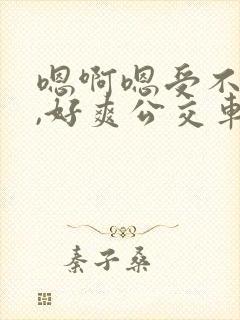 嗯啊嗯受不
,好爽公交车
秦子桑